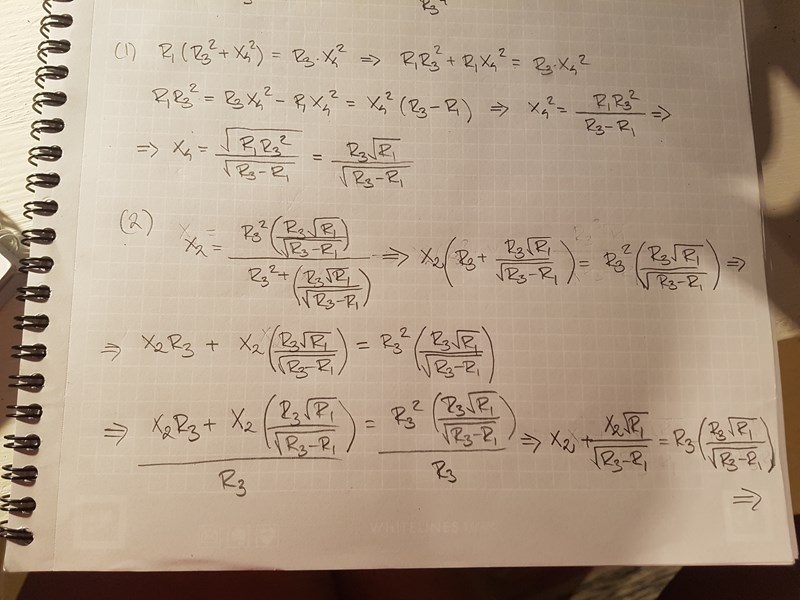 R₃²
(1) R₁(R₃² + X₄²) = R₃·X₄² ⇒ R₁R₃² + R₁X₄² = R₃·X₄²
R₁R₃² = R₃X₄² − R₁X₄² = X₄²(R₃ − R₁) ⇒ X₄² = R₁R₃² / (R₃ − R₁) ⇒
⇒ X₄ = √(R₁R₃²) / √(R₃ − R₁) = R₃√R₁ / √(R₃ − R₁)
(2) X₂ = R₃²(R₃√R₁ / √(R₃ − R₁)) / (R₃² + (R₃√R₁ / √(R₃ − R₁))) ⇒ X₂(R₃ + R₃√R₁ / √(R₃ − R₁)) = R₃²(R₃√R₁ / √(R₃ − R₁)) ⇒
⇒ X₂R₃ + X₂(R₃√R₁ / √(R₃ − R₁)) = R₃²(R₃√R₁ / √(R₃ − R₁))
⇒ (X₂R₃ + X₂(R₃√R₁ / √(R₃ − R₁))) / R₃ = R₃²(R₃√R₁ / √(R₃ − R₁)) / R₃ ⇒ X₂ + X₂√R₁ / √(R₃ − R₁) = R₃(R₃√R₁ / √(R₃ − R₁))
⇒